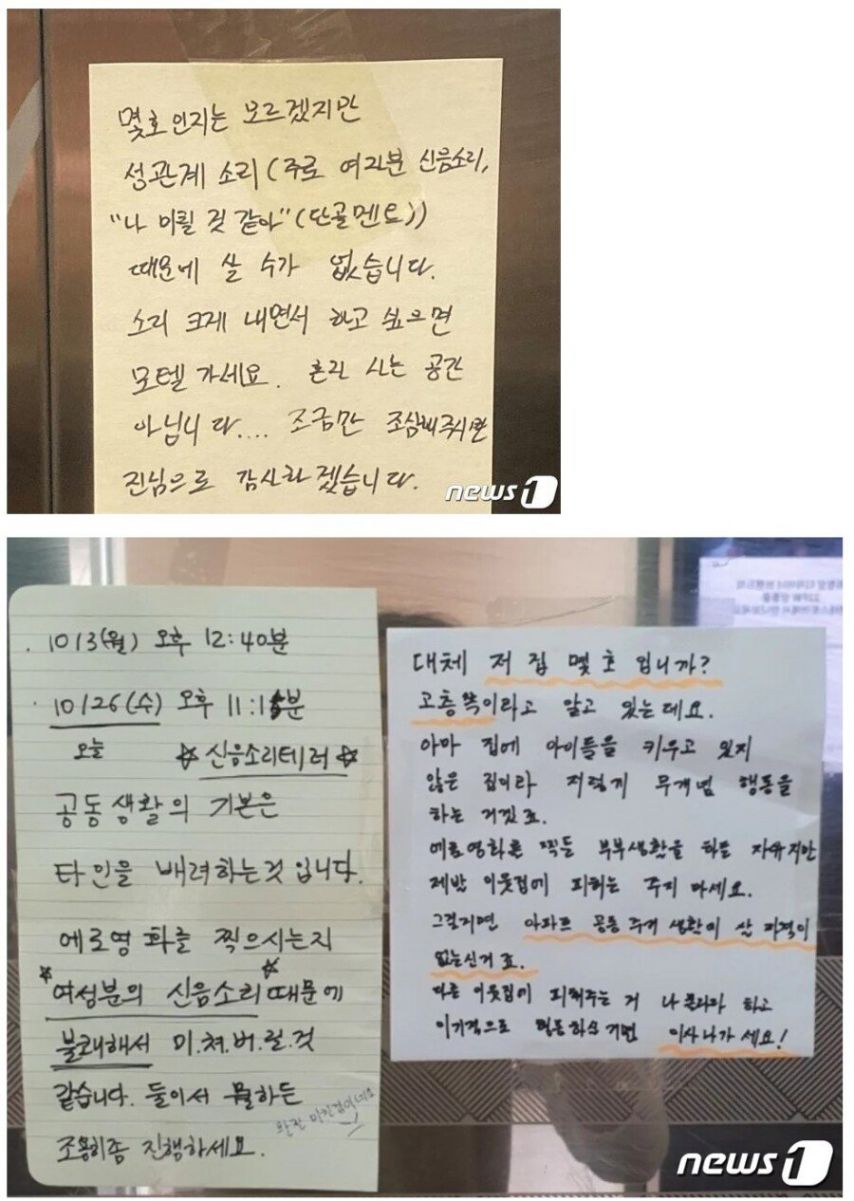 몇호인지는 모르겠지만
성관계 소리 (주로 여자분 신음소리,
"나 미칠 것 같아" (단골멘트))
때문에 살 수가 없습니다.
소리 크게 내면서 하고 싶으면
모텔 가세요. 혼자 사는 공간
아닙니다.... 조금만 조심해주시면
진심으로 감사하겠습니다.
news1
. 10/3(월) 오후 12:40분
. 10/26(수) 오후 11:15분
오늘 ☆신음소리테러☆
공동생활의 기본은
타인을 배려하는것 입니다.
에로영화를 찍으시는지
☆여성분의 신음소리☆ 때문에
불쾌해서 미.쳐.버.릴.것
같습니다. 둘이서 뭘하든
조용히좀 진행하세요.
대체 저 집 몇 호 입니까?
고층쪽이라고 알고 있는데요.
아마 집에 아이들을 키우고 있지
않은 집이라 저렇게 무개념 행동을
하는 거겠죠.
에로영화를 찍든 부부생활을 하든 자유지만
제발 이웃집에 피해는 주지 마세요.
그럴거면 아파트 공동 주거 생활이 살 자격이
없는신거죠.
다른 이웃집이 피해주는 거 나 몰라라 하고
이기적으로 행동하실 거면 이사 나가세요!
news1